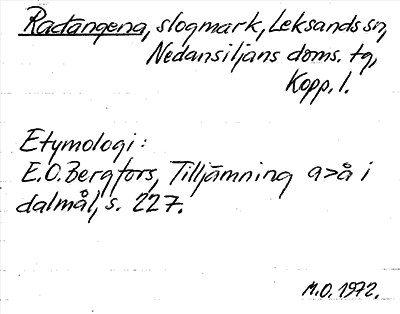 Radängena, slogmark, Leksands sn,
Nedansiljans doms. tg,
Kopp. l.
Etymologi:
E.O. Bergfors, Tilljämning a>å i
dalmål, s. 227.
M.O. 1972.